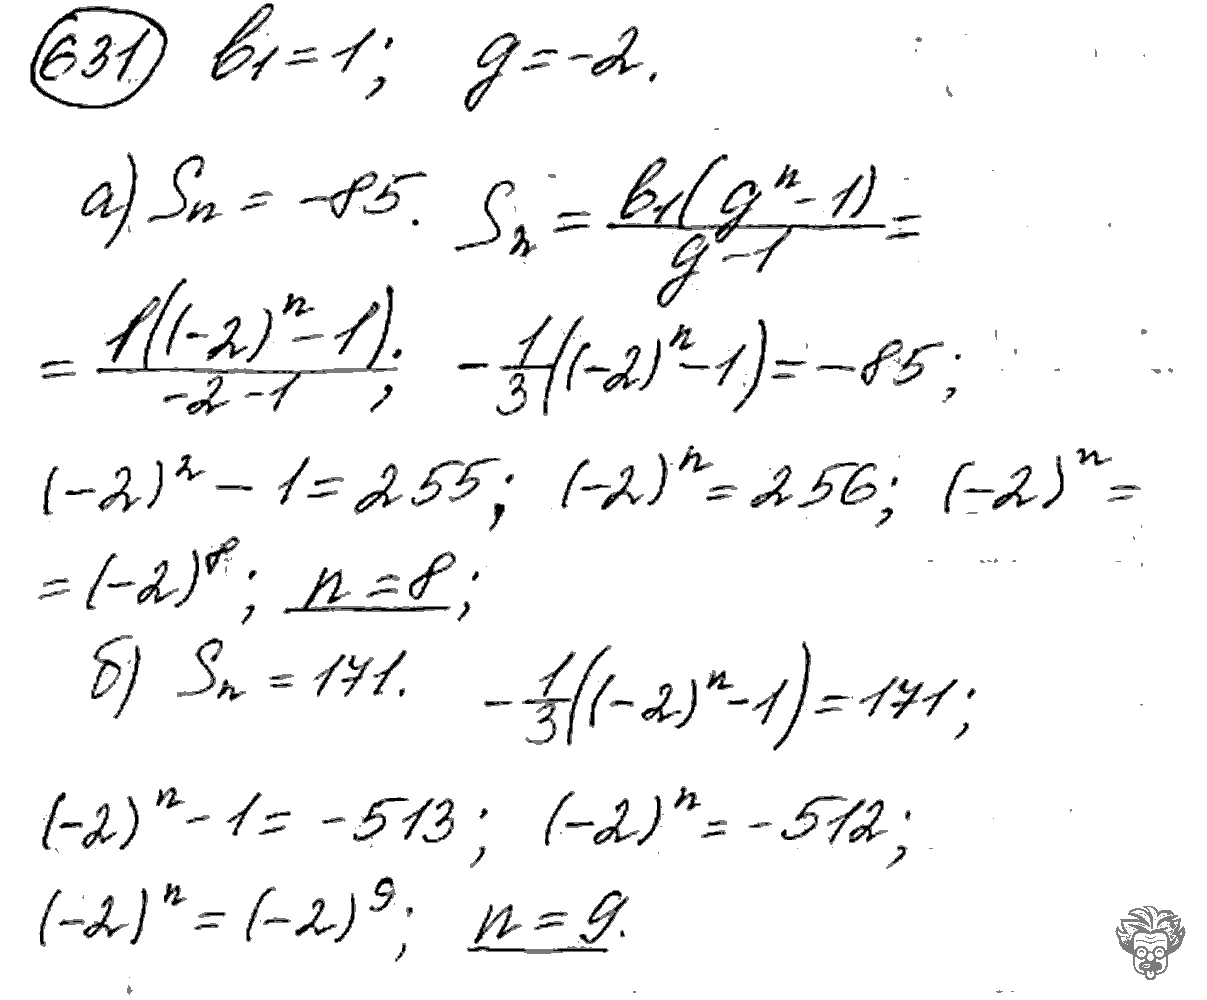 631 b₁ = 1; g = -2.
а) Sₙ = -85. Sₙ = b₁(gⁿ - 1) / g - 1 =
= 1((-2)ⁿ - 1) / -2 - 1; -1/3((-2)ⁿ - 1) = -85;
(-2)² - 1 = 255; (-2)ⁿ = 256; (-2)ⁿ =
= (-2)⁸; n = 8;
б) Sₙ = 171. -1/3((-2)ⁿ - 1) = 171;
(-2)ⁿ - 1 = -513; (-2)ⁿ = -512;
(-2)ⁿ = (-2)⁹; n = 9.